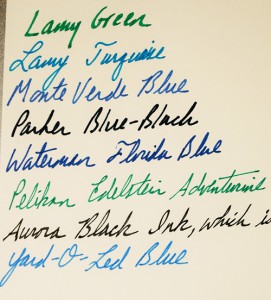 Lamy Green
Lamy Turquoise
Monte Verde Blue
Parker Blue-Black
Waterman Florida Blue
Pelikan Edelstein Adventurine
Aurora Black Ink, which is
Yard-O-Led Blue